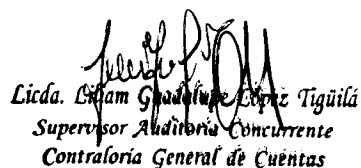 Licda. Guadalupe López Tigüilá
Supervisor Auditoría Concurrente
Contraloría General de Cuentas